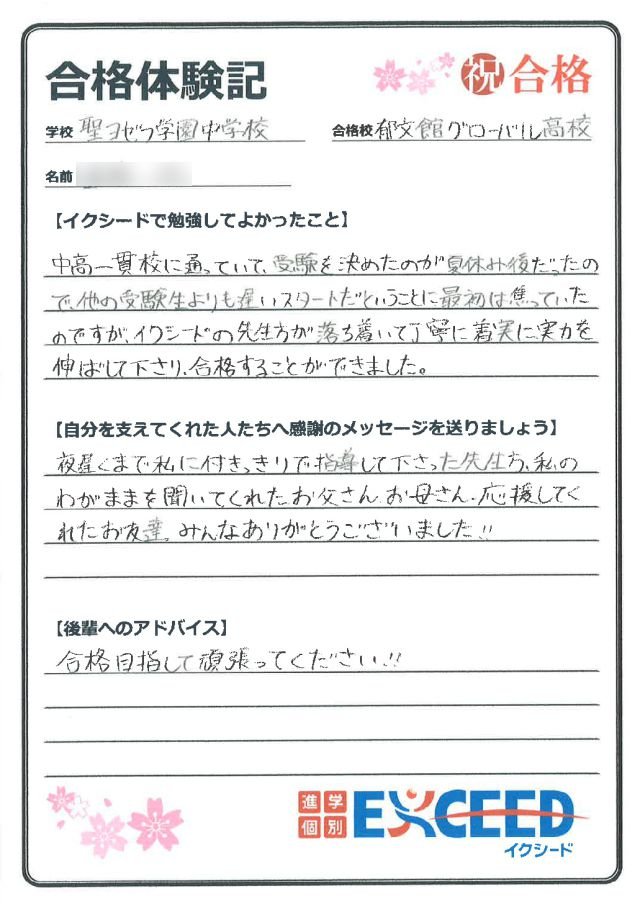 合格体験記
祝 合格
学校 聖ヨゼフ学園中学校
合格校 郁文館グローバル高校
名前
【イクシードで勉強してよかったこと】
中高一貫校に通っていて、受験を決めたのが夏休み後だったの
で、他の受験生よりも遅いスタートだということに最初は焦っていた
のですが、イクシードの先生方が落ち着いて丁寧に着実に実力を
伸ばして下さり、合格することができました。
【自分を支えてくれた人たちへ感謝のメッセージを送りましょう】
夜遅くまで私に付きっきりで指導して下さった先生方、私の
わがままを聞いてくれたお父さん、お母さん、応援してく
れたお友達。みんなありがとうございました!!
【後輩へのアドバイス】
合格目指して頑張ってください!!
進学
個別
EXCEED
イクシード